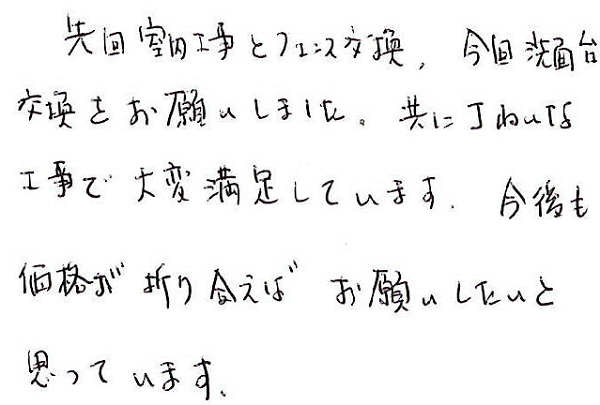 先回室内工事とフェンス交換、今回洗面台
交換をお願いしました。共に丁ねいな
工事で大変満足しています。今後も
価格が折り合えばお願いしたいと
思っています。